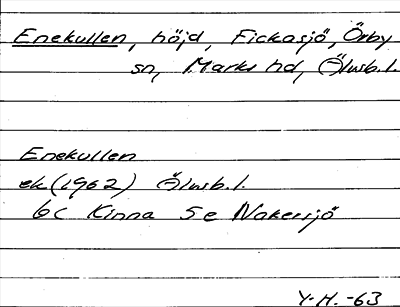 Enekullen, höjd, Fickasjö, Örby
sn, Marks hd, Älvsb.l.
Enekullen
ek (1962) Älvsb.l.
6c Kinna 5e Nakersjö
Y.H. -63